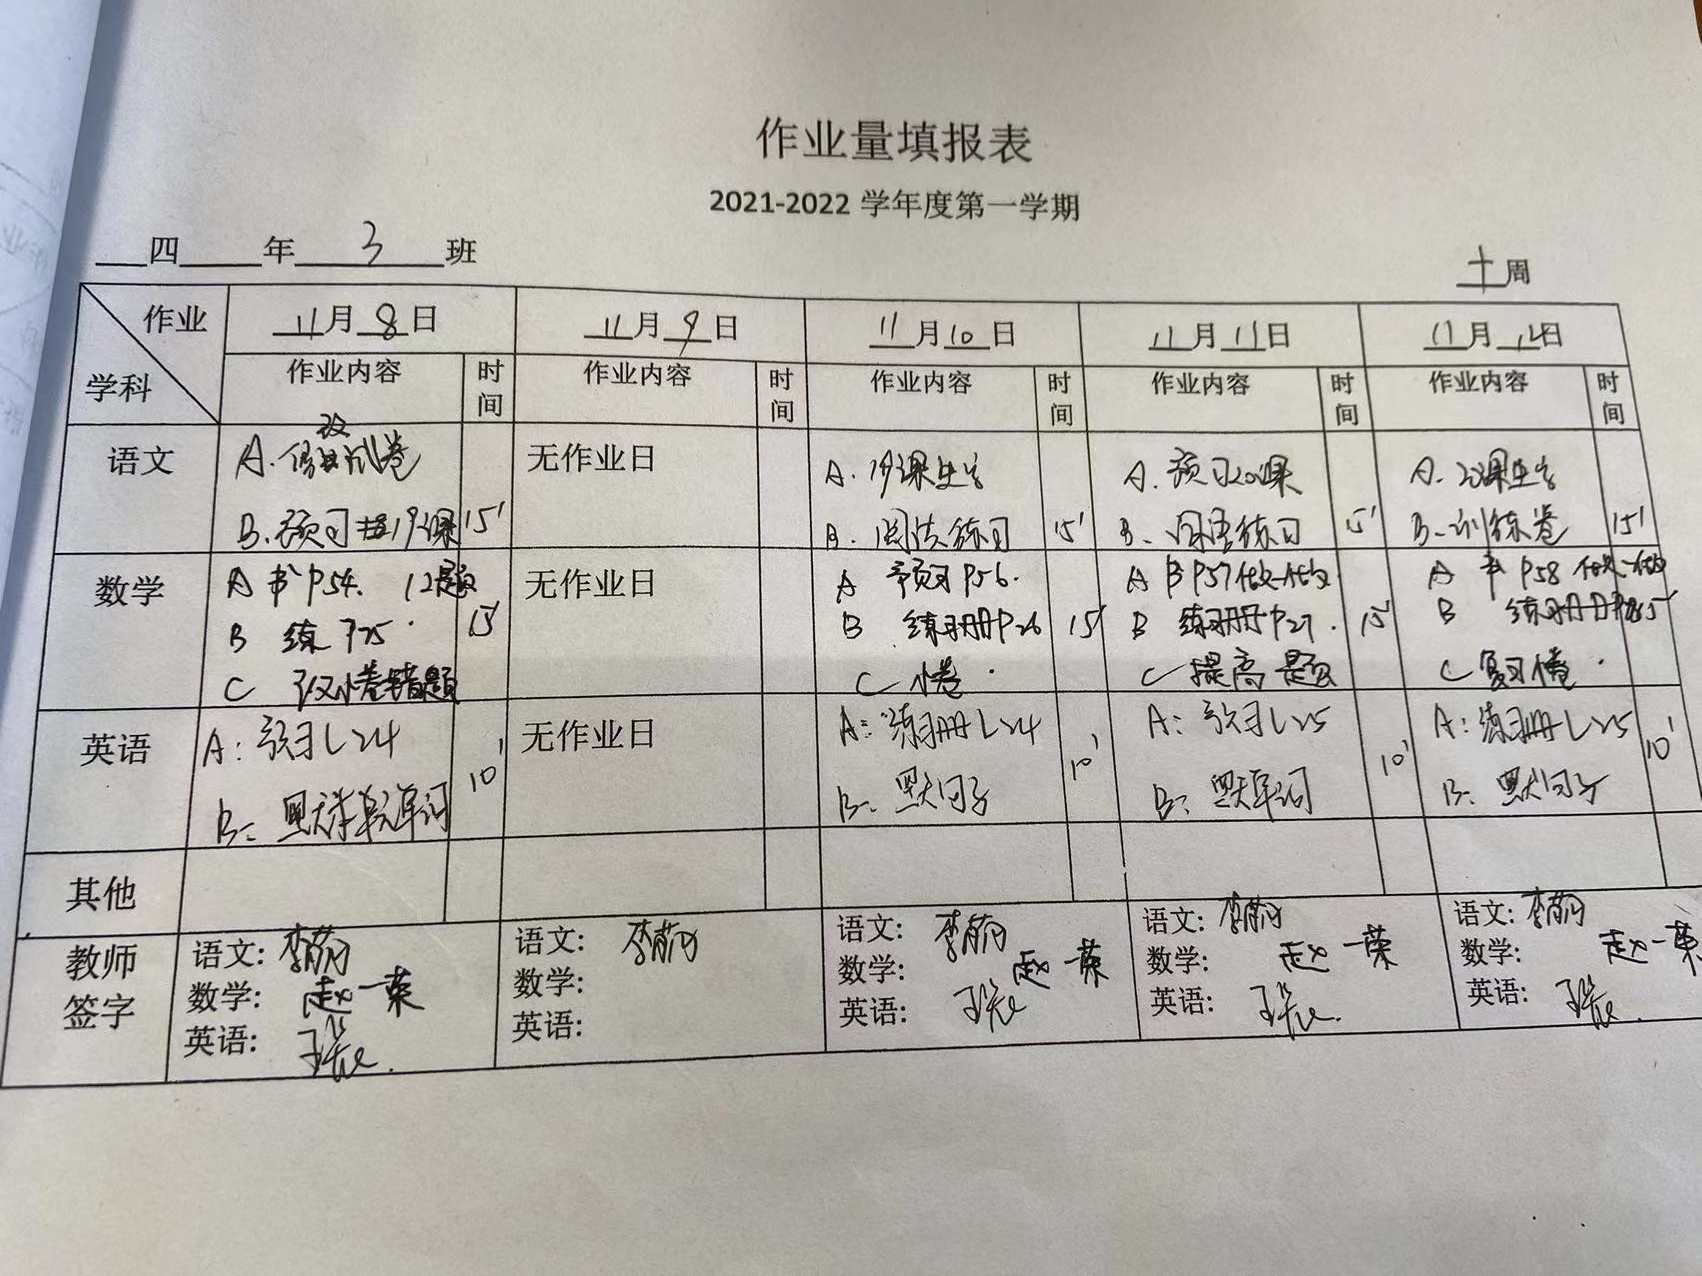 作业量填报表
2021-2022 学年度第一学期
四 年 3 班
十周
作业
学科
11月8日
11月9日
11月10日
11月11日
11月12日
作业内容 时间
作业内容 时间
作业内容 时间
作业内容 时间
作业内容 时间
语文
A. 修改试卷
B. 预习 19课 15'
无作业日
A. 19课生字
B. 阅读练习 15'
A. 预习20课
B. 练习 15'
A. 20课生字
B. 训练卷 15'
数学
A 书P54. 12题
B 练P25
C 订小卷错题
15'
无作业日
A 预习P56.
B 练习册P26 15'
C 小卷.
A 书P57做一做
B 练习册P27. 15'
C 提高题
A 书P58 做一做
B 练习册 15'
C 复习卷.
英语
A: 预习L24
B: 默本单元单词
10'
无作业日
A: 练习册L24
B: 默句子
10'
A: 预习L25
B: 默单词
10'
A: 练习册L25
B: 默句子
10'
其他
教师
签字
语文:
数学: 赵一荣
英语:
语文:
数学:
英语:
语文:
数学: 赵一荣
英语:
语文:
数学: 赵一荣
英语:
语文:
数学: 赵一荣
英语: